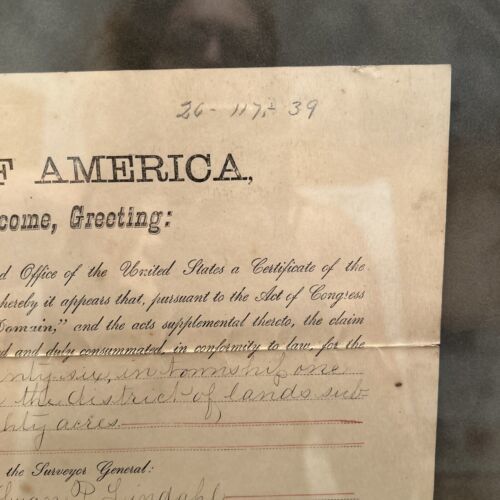 26 - 117 - 39
F AMERICA,
come, Greeting:
d Office of the United States a Certificate of the
hereby it appears that, pursuant to the Act of Congress
Domain," and the acts supplemental thereto, the claim
d and duly consummated, in conformity to law, for the
nty-six, in township one
the district of lands sub
hty acres
the Surveyor General:
P. Lundahl